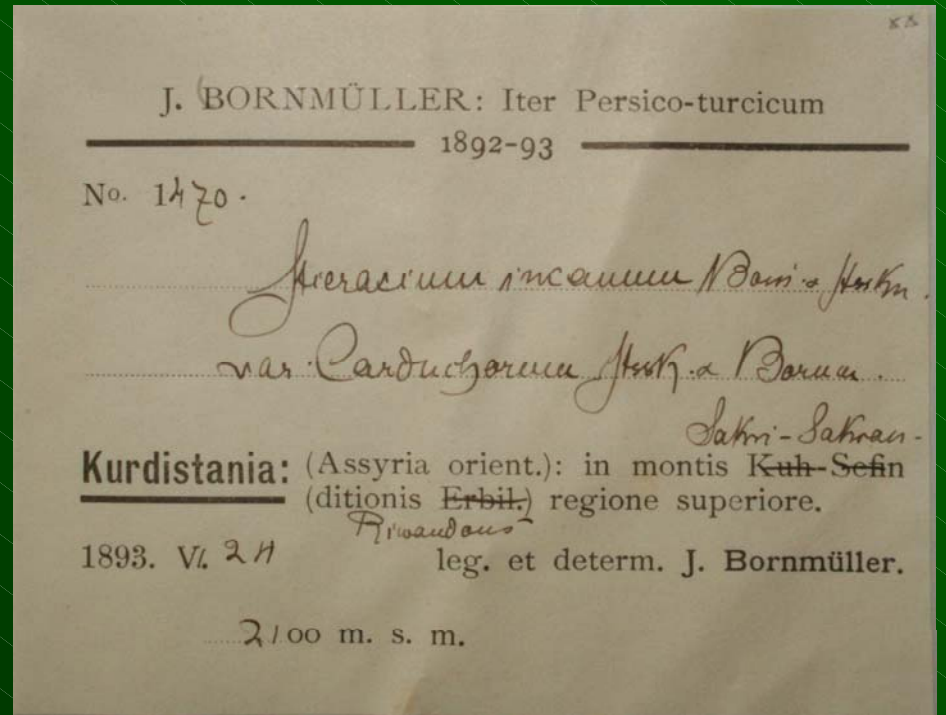 J. BORNMÜLLER: Iter Persico-turcicum
1892-93
No. 1470.
Hieracium incanum
var. Carduchorum & Bornm.
Sakri-Sakran-
Kurdistania: (Assyria orient.): in montis Kuh-Sefin
(ditionis Erbil.) regione superiore.
Riwandous
1893. VI. 24 leg. et determ. J. Bornmüller.
2100 m. s. m.